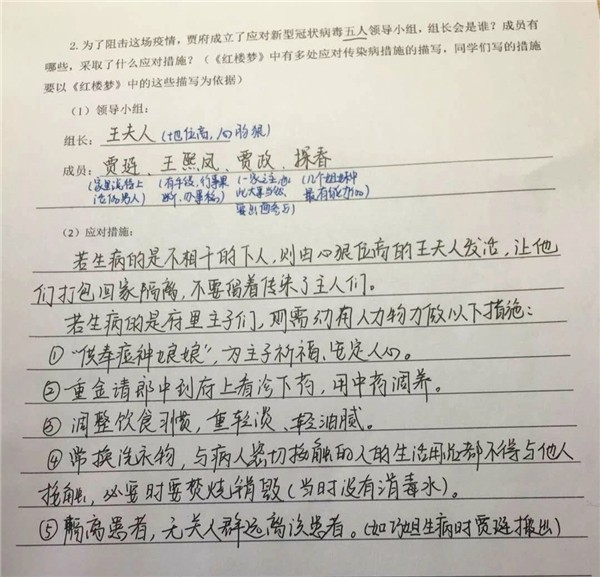 2.为了阻击这场疫情，贾府成立了应对新型冠状病毒五人领导小组，组长会是谁？成员有
哪些，采取了什么应对措施？（《红楼梦》中有多处应对传染病措施的描写，同学们写的措施
要以《红楼梦》中的这些描写为依据）
（1）领导小组：
组长：王夫人（地位高，心的狠）
成员：贾琏、王熙凤、贾政、探春
（家里说得上话的男人）（有手段，行事果断，办事稳）（一家之主，如此大事当然要出面参与）（几个姐妹中最有能力的）
（2）应对措施：
若生病的是不相干的下人，则由心狠位高的王夫人发话，让他
们打包回家隔离，不要留着传染了主人们。
若生病的是府里主子们，则需动用人力物力做以下措施：
①“供奉痘神娘娘”，为主子祈福、安定人心。
②重金请郎中到府上看诊下药，用中药调养。
③调整饮食习惯，重轻淡、轻油腻。
④常换洗衣物，与病人密切接触的人的生活用品都不得与他人
接触，必要时要焚烧销毁（当时没有消毒水）。
⑤隔离患者，无关人群远离该患者。（如巧姐生病时贾琏搬出）